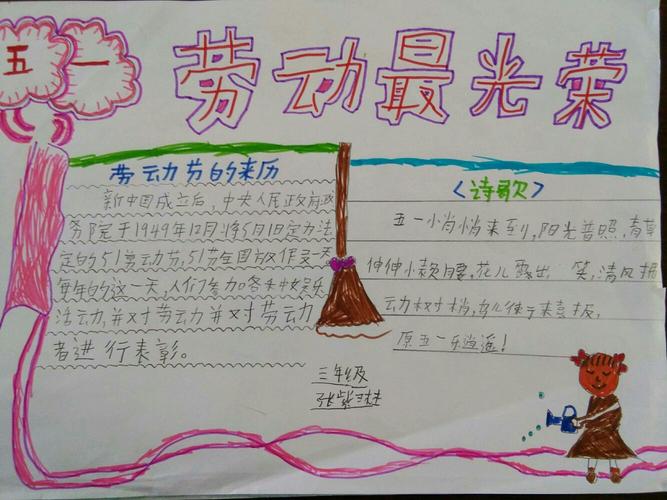 五一
劳动最光荣
劳动节的来历
新中国成立后，中央人民政府政
务院于1949年12月将5月1日定为法
定的51劳动节，51节全国放假一天
每年的这一天，人们参加各种娱乐
活动，并对劳动并对劳动
者进行表彰。
《诗歌》
五一小悄悄来到，阳光普照，青草
伸伸小款腰，花儿露出笑，清风报
动树梢，
原五一乐逍遥！
三年级
张紫